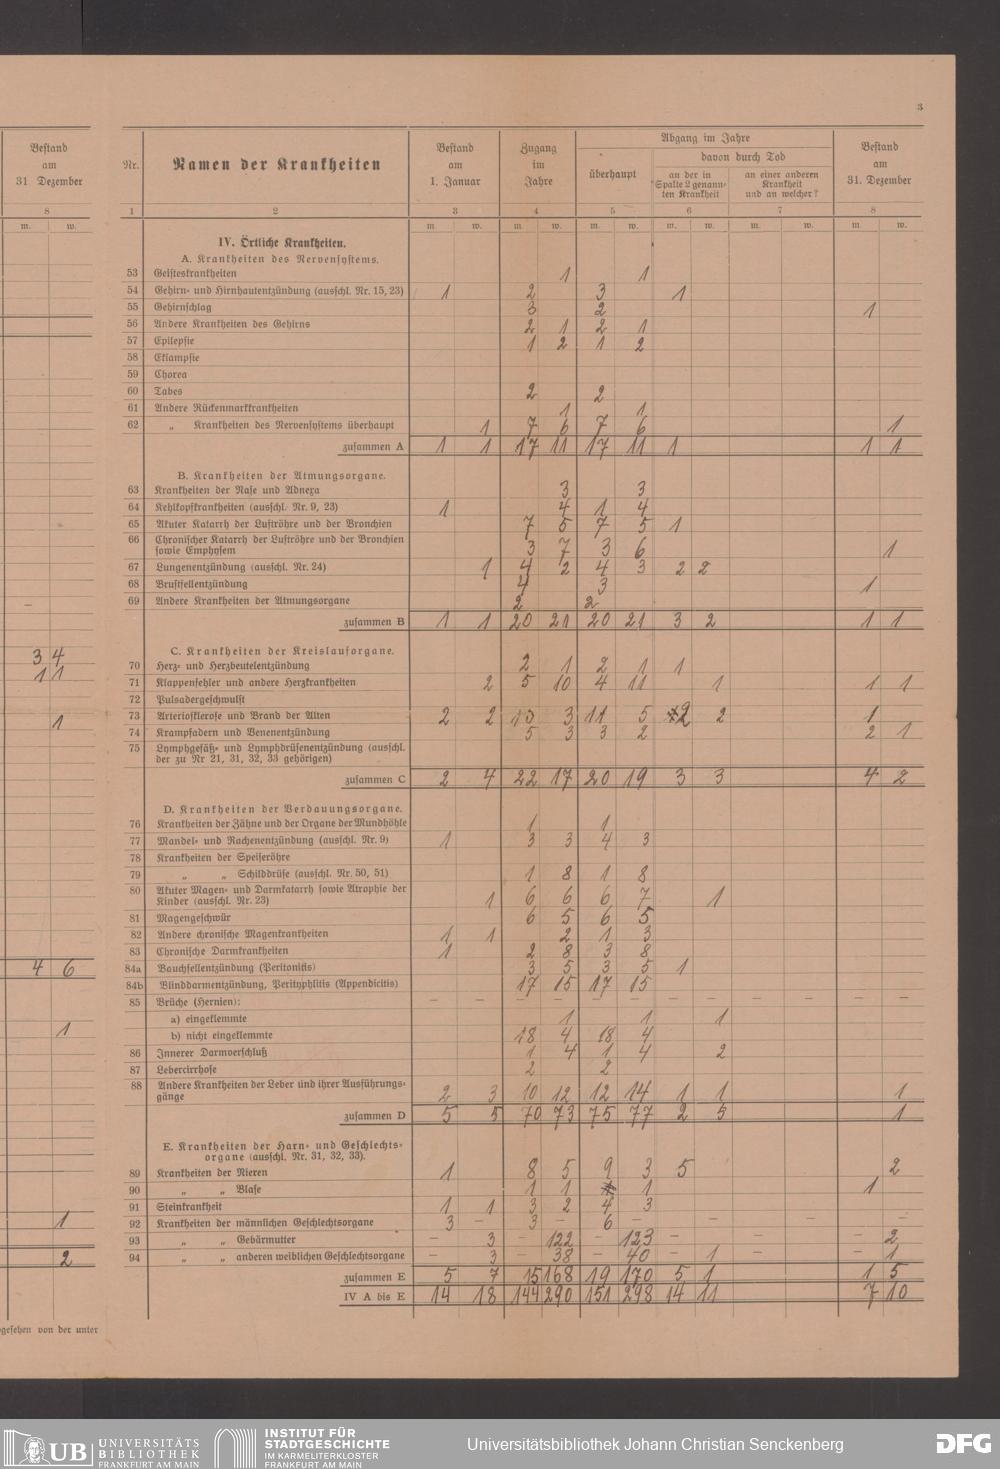 3
Bestand
am
31 Dezember
8
m. w.
3 4
1 1
1
4 6
1
1
2
gesehen von der unter
Nr. Namen der Krankheiten Bestand am 1. Januar Zugang im Jahre Abgang im Jahre Bestand am 31. Dezember
überhaupt davon durch Tod
an der in Spalte 2 genannten Krankheit an einer anderen Krankheit und an welcher?
1 2 3 4 5 6 7 8
m. w. m. w. m. w. m. w. m. w. m. w.
IV. Örtliche Krankheiten.
A. Krankheiten des Nervensystems.
53 Geisteskrankheiten 1 1
54 Gehirn- und Hirnhautentzündung (ausschl. Nr. 15, 23) 1 2 3 1
55 Gehirnschlag 3 2 1
56 Andere Krankheiten des Gehirns 2 1 2 1
57 Epilepsie 1 2 1 2
58 Eklampsie
59 Chorea
60 Tabes 2 2
61 Andere Rückenmarkkrankheiten 1 1
62 „ Krankheiten des Nervensystems überhaupt 1 7 6 7 6 1
zusammen A 1 1 17 11 17 11 1 1 1
B. Krankheiten der Atmungsorgane.
63 Krankheiten der Nase und Adnexa 3 3
64 Kehlkopfkrankheiten (ausschl. Nr. 9, 23) 1 4 1 4
65 Akuter Katarrh der Luftröhre und der Bronchien 7 5 7 5 1
66 Chronischer Katarrh der Luftröhre und der Bronchien
sowie Emphysem 3 7 3 6 1
67 Lungenentzündung (ausschl. Nr. 24) 1 4 2 4 3 2 2
68 Brustfellentzündung 4 3 1
69 Andere Krankheiten der Atmungsorgane 2 2
zusammen B 1 1 20 21 20 21 3 2 1 1
C. Krankheiten der Kreislauforgane.
70 Herz- und Herzbeutelentzündung 2 1 2 1 1
71 Klappenfehler und andere Herzkrankheiten 2 5 10 4 11 1 1 1
72 Pulsadergeschwulst
73 Arteriosklerose und Brand der Alten 2 2 10 3 11 5 2 2 1
74 Krampfadern und Venenentzündung 5 3 3 2 2 1
75 Lymphgefäß- und Lymphdrüsenentzündung (ausschl.
der zu Nr 21, 31, 32, 33 gehörigen)
zusammen C 2 4 22 17 20 19 3 3 4 2
D. Krankheiten der Verdauungsorgane.
76 Krankheiten der Zähne und der Organe der Mundhöhle 1 1
77 Mandel- und Rachenentzündung (ausschl. Nr. 9) 1 3 3 4 3
78 Krankheiten der Speiseröhre
79 „ „ Schilddrüse (ausschl. Nr. 50, 51) 1 8 1 8
80 Akuter Magen- und Darmkatarrh sowie Atrophie der
Kinder (ausschl. Nr. 23) 1 6 6 6 7 1
81 Magengeschwür 6 5 6 5
82 Andere chronische Magenkrankheiten 1 1 2 1 3
83 Chronische Darmkrankheiten 1 2 8 3 8
84a Bauchfellentzündung (Peritonitis) 3 5 3 5 1
84b Blinddarmentzündung, Perityphlitis (Appendicitis) 17 15 17 15
85 Brüche (Hernien): — — — — — — — — — — — —
a) eingeklemmte 1 1 1
b) nicht eingeklemmte 18 4 18 4
86 Innerer Darmverschluß 1 4 1 4 2
87 Lebercirrhose 2 2
88 Andere Krankheiten der Leber und ihrer Ausführungs-
gänge 2 3 10 12 12 14 1 1 1
zusammen D 5 5 70 73 75 77 2 5 1
E. Krankheiten der Harn- und Geschlechts-
organe (ausschl. Nr. 31, 32, 33).
89 Krankheiten der Nieren 1 8 5 9 3 5 2
90 „ „ Blase 1 1 1 1
91 Steinkrankheit 1 1 3 2 4 3
92 Krankheiten der männlichen Geschlechtsorgane 3 — 3 — 6 — — — —
93 „ „ Gebärmutter — 3 — 122 — 123 — — — 2
94 „ „ anderen weiblichen Geschlechtsorgane — 3 — 38 — 40 — 1 — — 1
zusammen E 5 7 15 168 19 170 5 1 1 5
IV A bis E 14 18 144 290 151 298 14 11 7 10
UB UNIVERSITÄTS
BIBLIOTHEK
FRANKFURT AM MAIN
INSTITUT FÜR
STADTGESCHICHTE
IM KARMELITERKLOSTER
FRANKFURT AM MAIN
Universitätsbibliothek Johann Christian Senckenberg
DFG